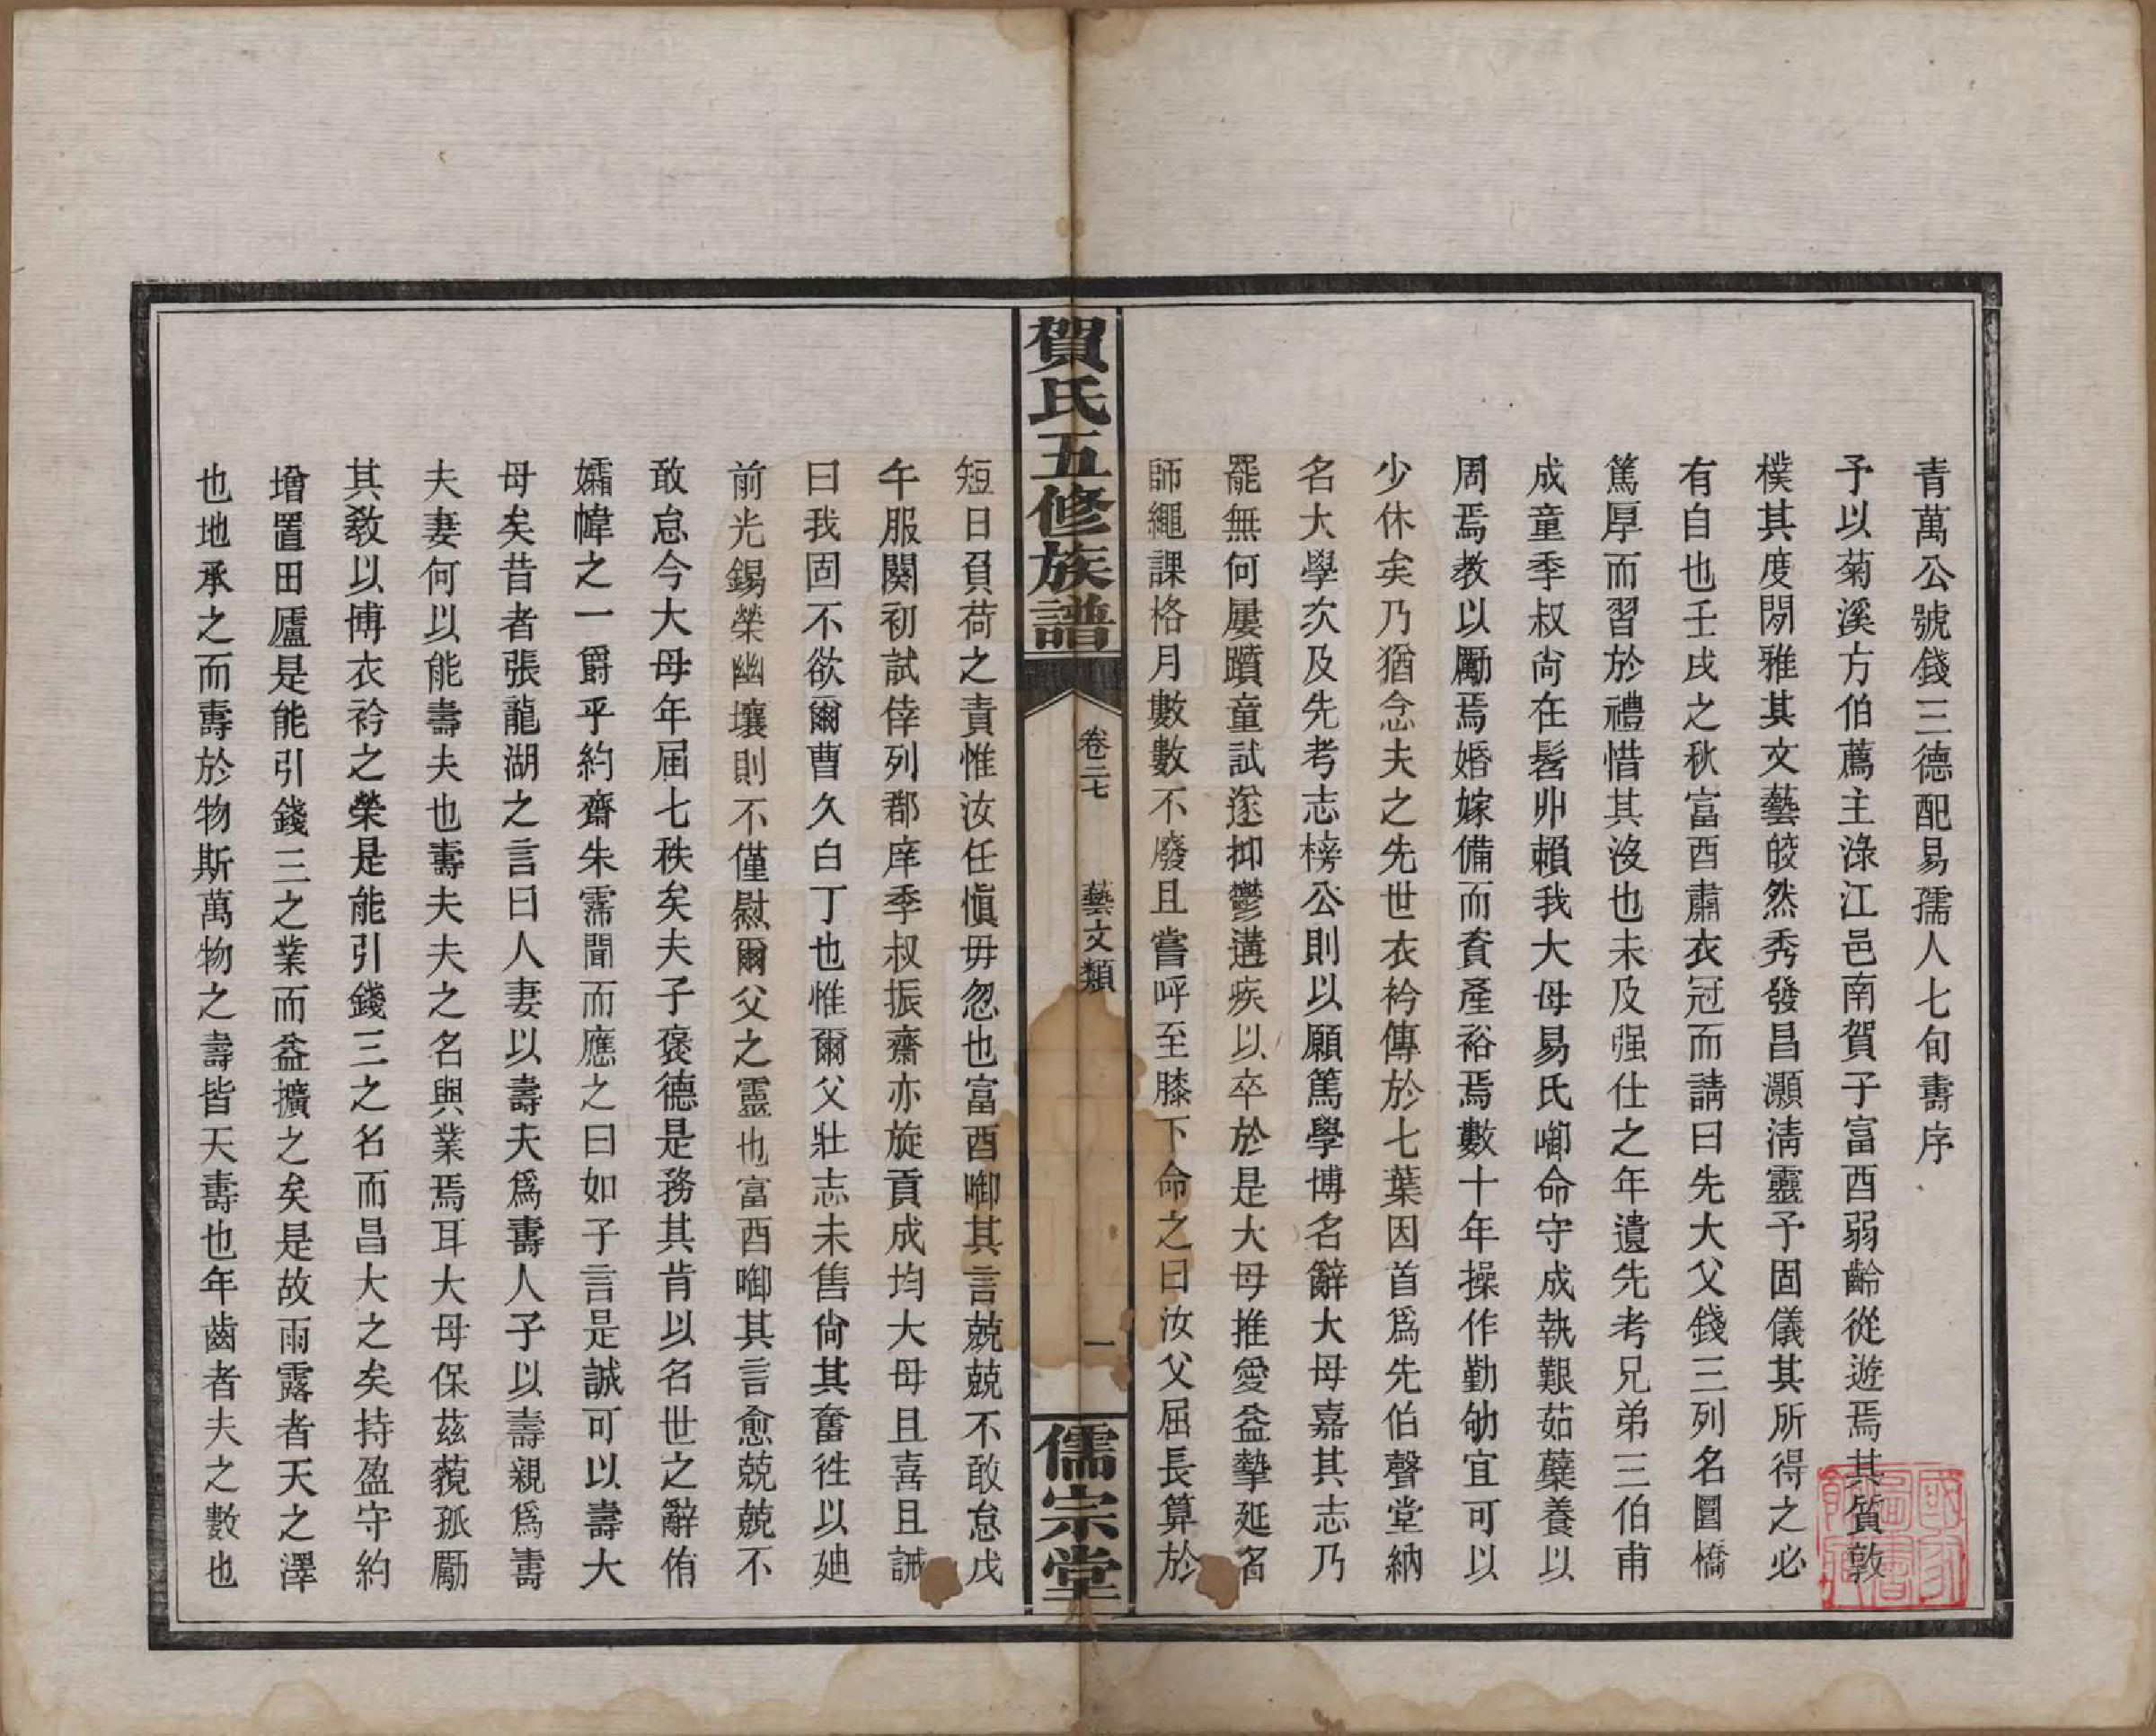 青萬公號錢三德配易孺人七旬壽序
予以菊溪方伯薦主淥江邑南賀子富酉弱齡從遊焉其質敦
樸其度閒雅其文藝皎然秀發昌灝淸靈予固儀其所得之必
有自也壬戌之秋富酉肅衣冠而請曰先大父錢三列名圜橋
篤厚而習於禮惜其沒也未及强仕之年遺先考兄弟三伯甫
成童季叔尙在髫丱賴我大母易氏啣命守成執艱茹蘗養以
周焉教以勵焉婚嫁備而資產裕焉數十年操作勤劬宜可以
少休矣乃猶念夫之先世衣衿傳於七葉因首爲先伯聲堂納
名大學次及先考志榜公則以願篤學博名辭大母嘉其志乃
罷無何屢躓童試遂抑鬱遘疾以卒於是大母推愛益摯延名
師繩課格月數數不廢且嘗呼至膝下命之曰汝父屈長算於
賀氏五修族譜
卷二七
藝文類
一
儒宗堂
短日負荷之責惟汝任愼毋忽也富酉啣其言兢兢不敢怠戊
午服闋初試倖列郡庠季叔振齋亦旋貢成均大母且喜且誡
曰我固不欲爾曹久白丁也惟爾父壯志未售尙其奮徃以廸
前光錫榮幽壤則不僅慰爾父之靈也富酉啣其言愈兢兢不
敢怠今大母年屆七秩矣夫子褒德是務其肯以名世之辭侑
孀幃之一爵乎約齋朱霈聞而應之曰如子言是誠可以壽大
母矣昔者張龍湖之言曰人妻以壽夫爲壽人子以壽親爲壽
夫妻何以能壽夫也壽夫夫之名與業焉耳大母保茲藐孤勵
其敎以博衣衿之榮是能引錢三之名而昌大之矣持盈守約
增置田廬是能引錢三之業而益擴之矣是故雨露者天之澤
也地承之而壽於物斯萬物之壽皆天壽也年齒者夫之數也